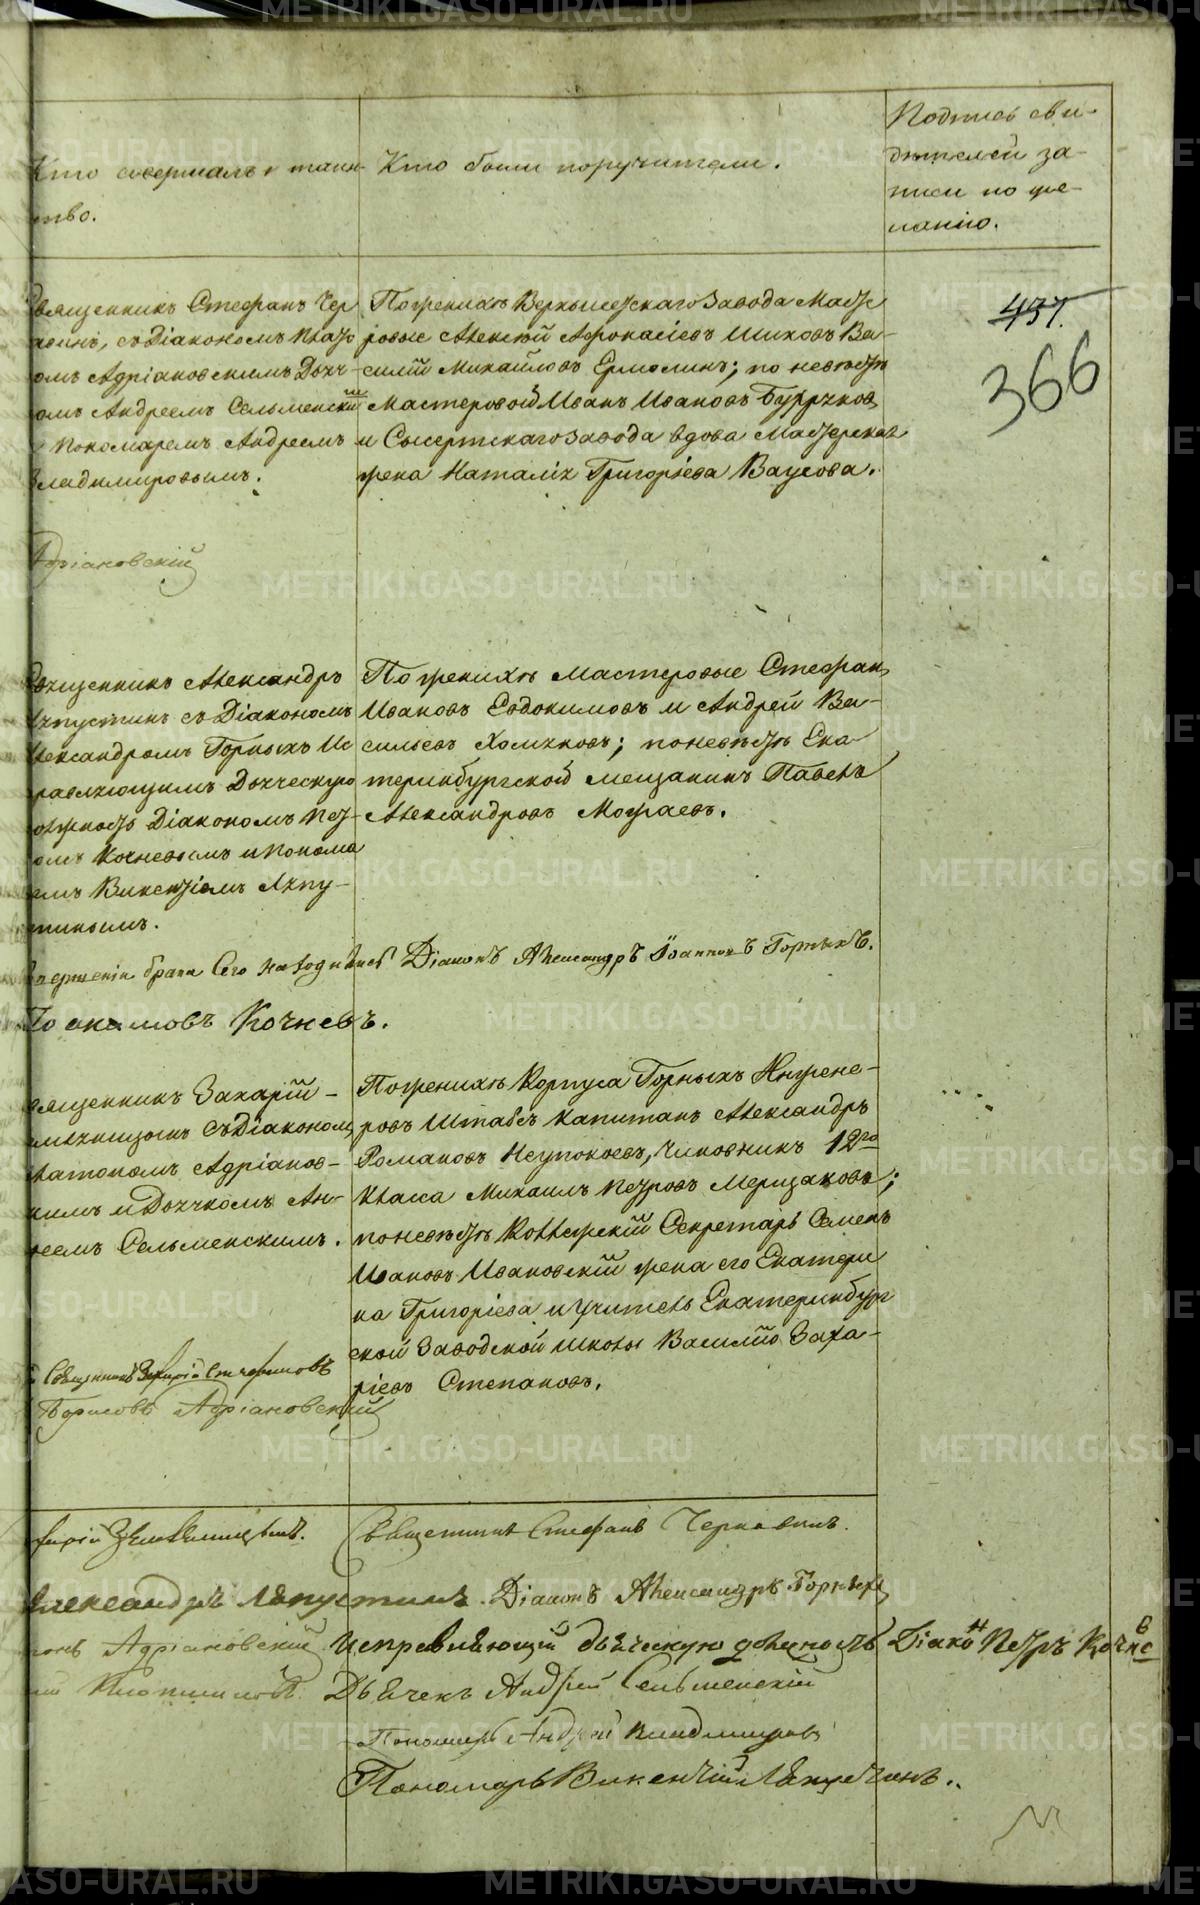 Кто совершалъ таин-
ство.
Кто были поручители.
Подпись сви-
дѣтелей за-
писи по же-
ланію.
457.
366
Священникъ Стефанъ Чер
съ Діакономъ
омъ Адріановскимъ Дьяч-
омъ Андреемъ Сельменскимъ
и Пономаремъ Андреемъ
Владимировымъ.
По женихѣ Верхъисетскаго Завода Масте
ровые Алексѣй Афонасіевъ Шиховъ Ва-
силій Михайловъ Ермолинъ; по невѣстѣ
Мастеровой Иванъ Ивановъ
и Сысертскаго Завода вдова Мастерская
жена Наталія Григоріева Ваусова.
Адріановскій
Священникъ Александръ
Ляпустинъ съ Діакономъ
Александромъ Горныхъ Ис
равляющимъ Дьяческую
олжность Діакономъ Пет-
омъ Кочневымъ и Понома
емъ Викентіемъ Ляпу-
тинымъ.
По женихѣ Мастеровые Стефанъ
Ивановъ Евдокимовъ и Андрей Ва-
сильевъ Хомяковъ; по невѣстѣ Ека-
теринбургской мещанинъ Павелъ
Александровъ Можаевъ.
брака Сего находился Діаконъ Александръ Іоанновъ Горныхъ.
Іоакимовъ Кочневъ.
вященникъ Захарій
съ Діакономъ
латономъ Адріанов-
кимъ и Дьячкомъ Ан-
реемъ Сельменскимъ.
По женихѣ Корпуса Горныхъ Инжене-
ровъ Штабсъ Капитанъ Александръ
Романовъ Неупокоевъ, Чиновникъ 12го
класса Михаилъ Петровъ Мерцаловъ;
по невѣстѣ Коллежскій Секретарь Семенъ
Ивановъ Ивановскій жена его Екатери
на Григоріева и учитель Екатеринбург
ской Заводской школы Василій Заха-
ріевъ Степановъ.
Священникъ Захарій
Борисовъ Адріановскій
харій Земляницынъ.
Священникъ Стефанъ Чернавинъ.
Александръ Ляпустинъ. Діаконъ Александръ Горныхъ
тонъ Адріановскій Исправляющій дьяческую должность Діаконъ Петръ Кочнев
Дьячекъ Андрей Сельменскій
Пономарь Андрей Владимировъ
Пономарь Викентій Ляпустинъ.